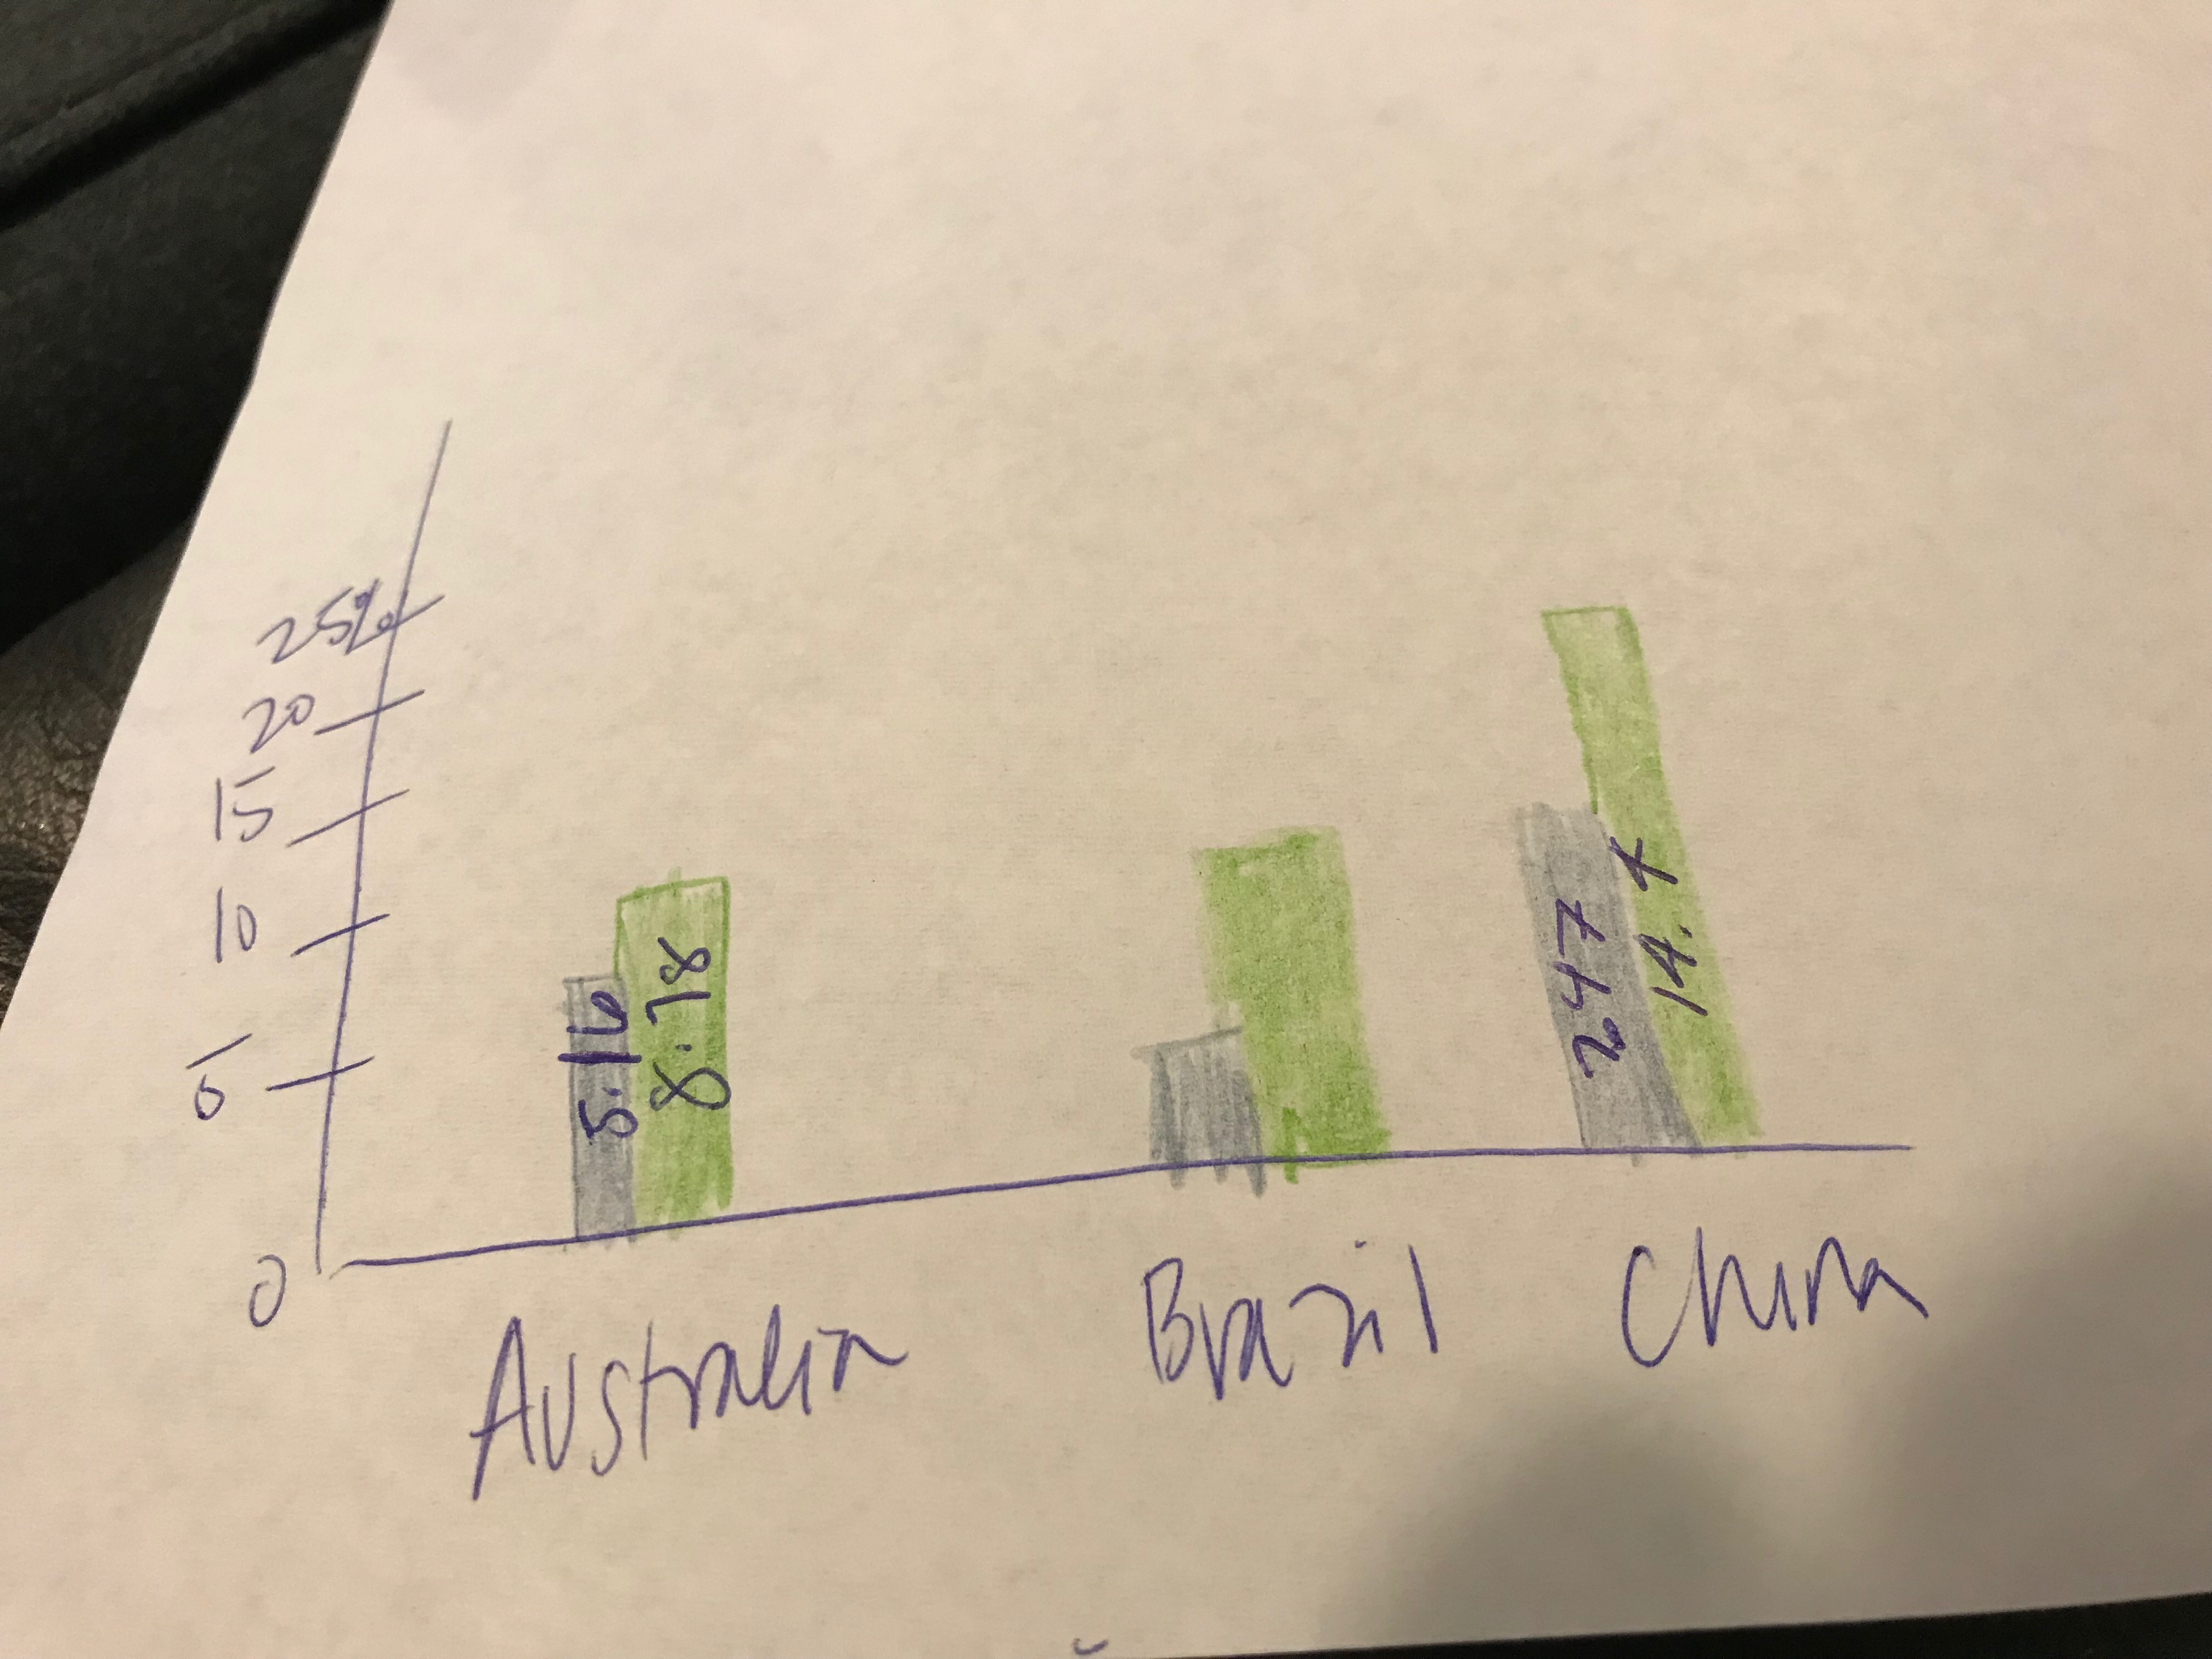 25%
20
15
10
5
0
5.16
8.78
247
14.4
Australia
Brazil
China